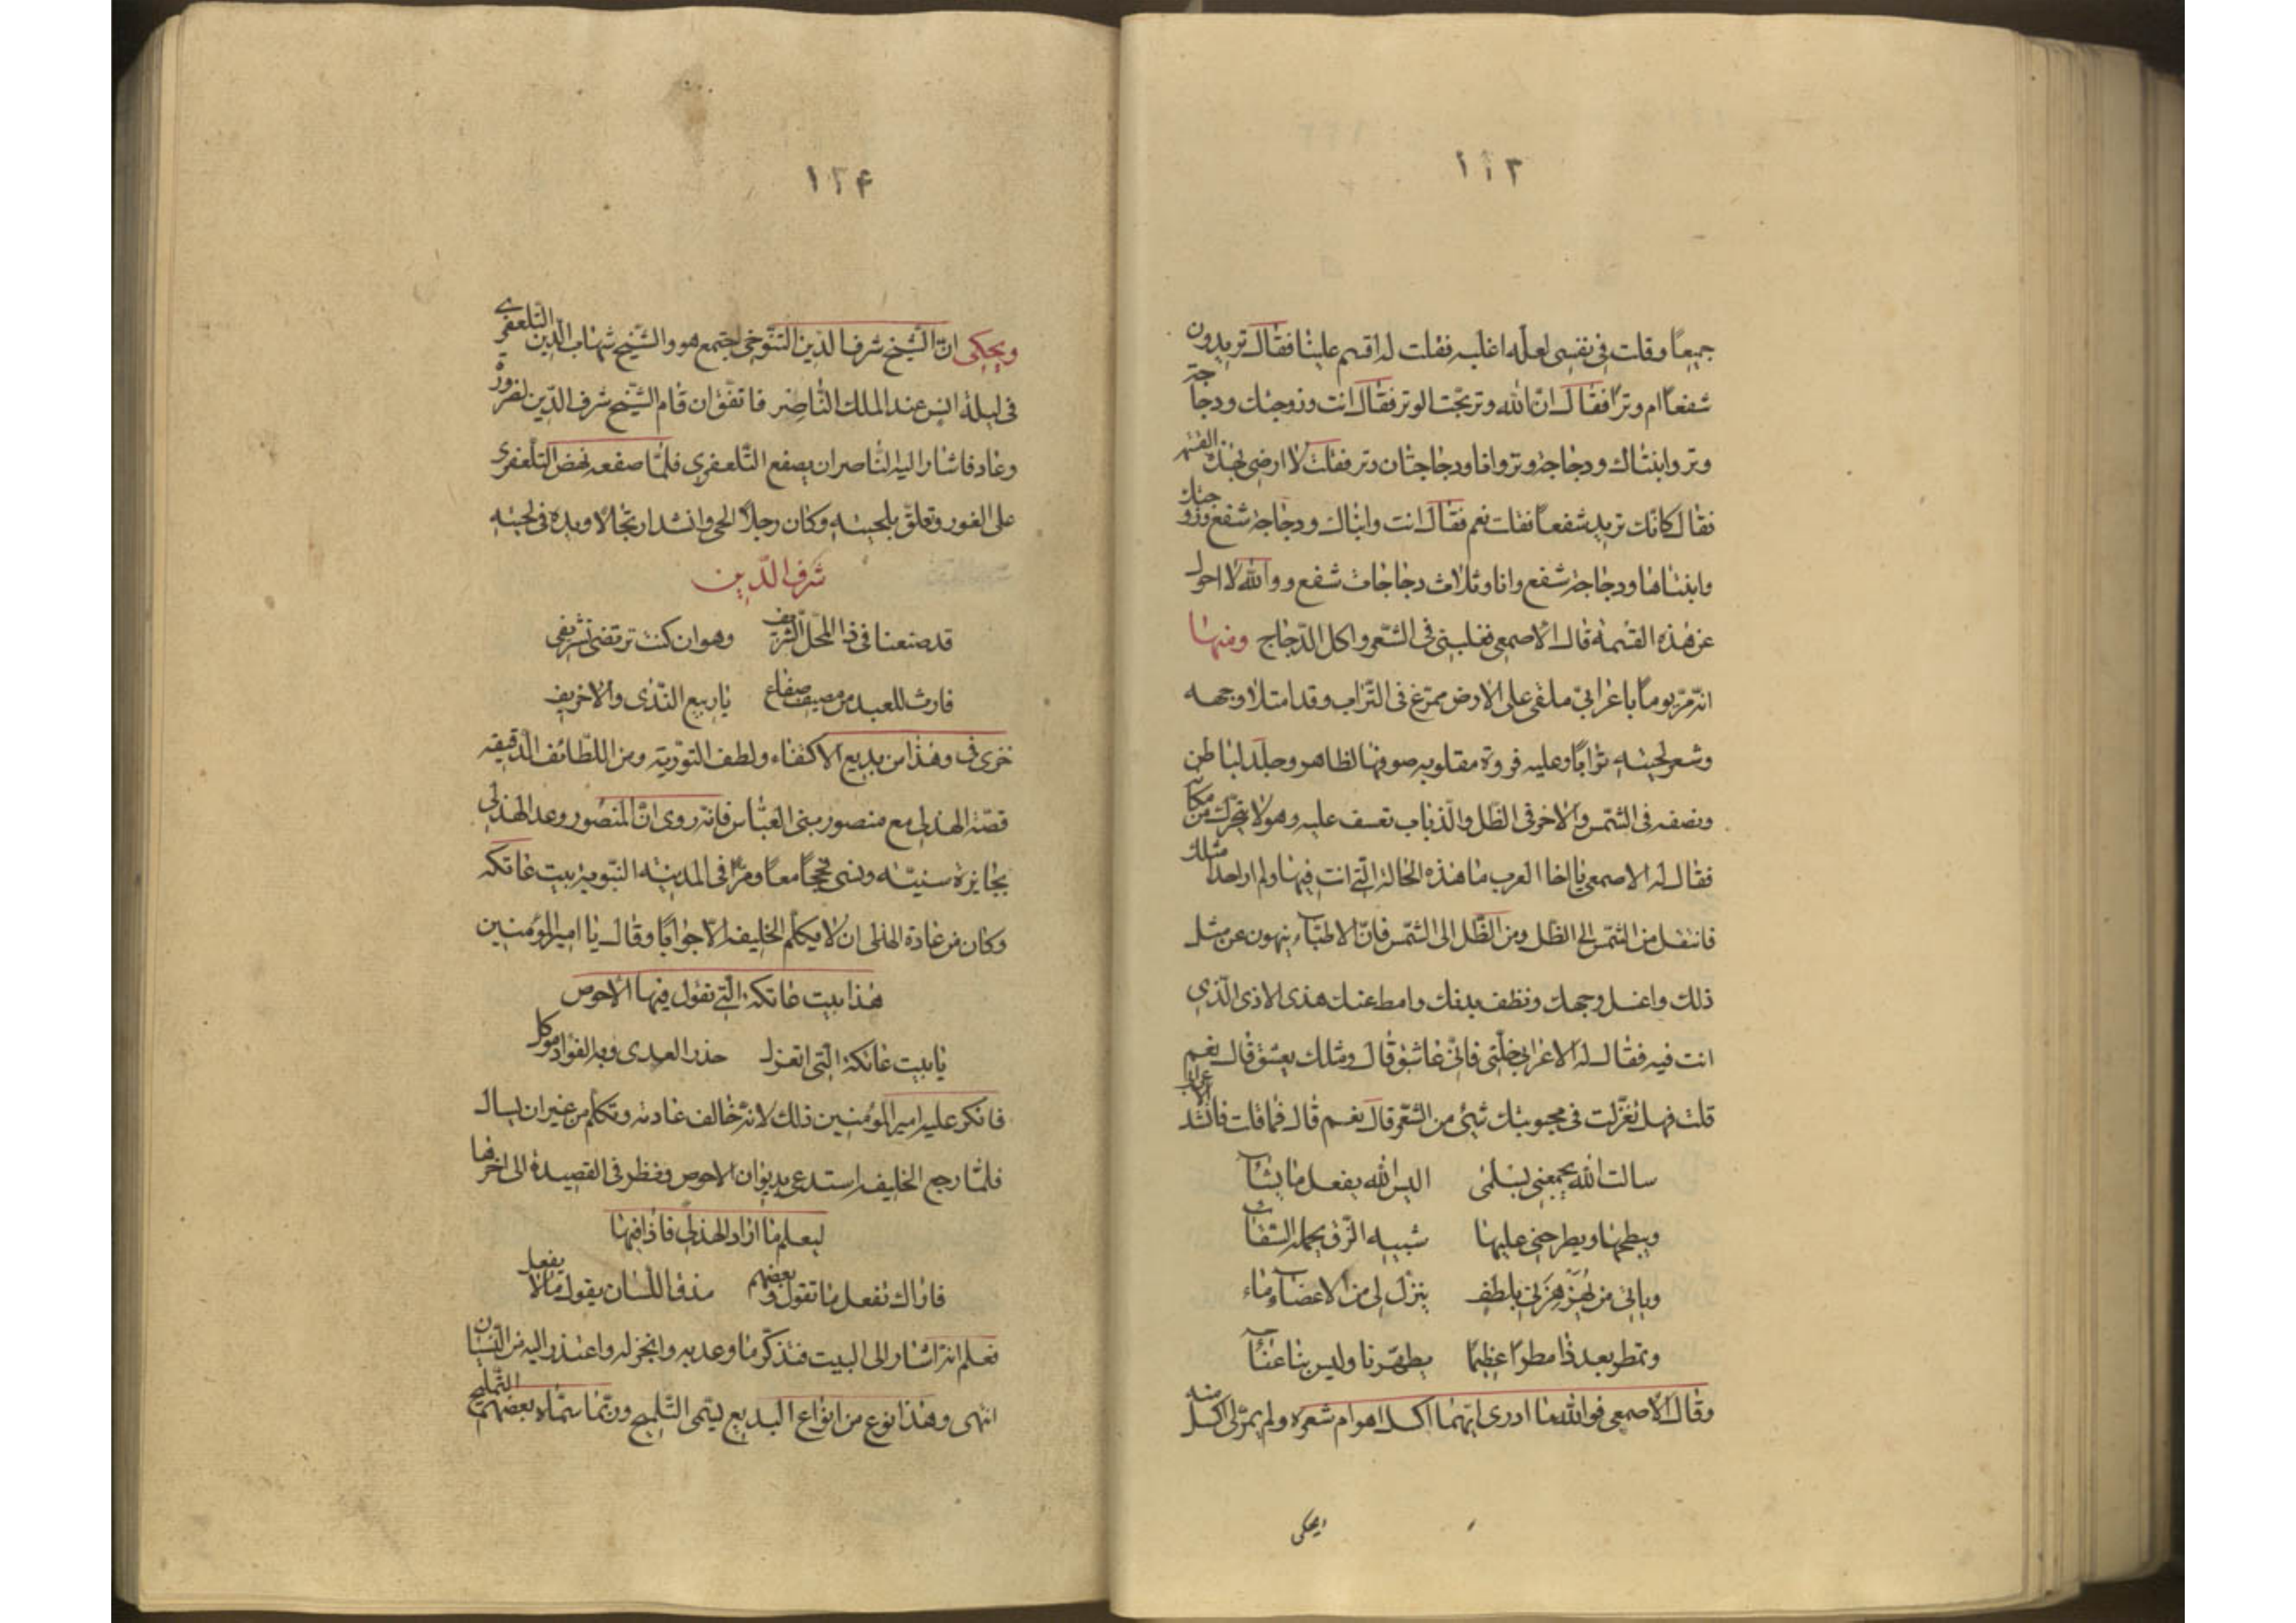 ١١٣
جميعًا وقلت في نفسي لعلّه اغلبه فقلت له اقسم علينا فقال تريدون
شفعًا ام وترًا فقال انّ الله وتر يحبّ الوتر فقال انت وزوجتك ودجاجة
وتر وابنتاك ودجاجة وتر وانا ودجاجتان وتر فقلت لا ارضى بهذه القسمة
فقال كانّك تريد شفعًا فقلت نعم فقال انت وابناك ودجاجة شفع وزوجتك
وابنتاها ودجاجة شفع وانا وثلاث دجاجات شفع ووالله لا احول
عن هذه القسمة قال الاصمعي فغلبني في الشّعر واكل الدّجاج ومنها
انّه مرّ يومًا باعرابيّ ملقى على الارض ممرّغ في التّراب وقد امتلا وجهه
وشعر لحيته ترابًا وعليه فروة مقلوبه صوفها لظاهر وجلد لباطن
ونصفه في الشّمس والاخر في الظّل والذّباب تعسف عليه وهو لا يتحرّك من مكانه
فقال له الاصمعي يا اخا العرب ما هذه الحالة الّتي انت فيها ولم ار احدا مثلك
فانتقل من الشّمس الى الظّل ومن الظّل الى الشّمس فانّ الاطبّاء ينهون عن مثل
ذلك واغسل وجهك ونظف بدنك وامط عنك هذى الاذى الّذي
انت فيه فقال له الاعرابي خلّني فانّي عاشق قال ومثلك يعشق قال نعم
قلت فهل تغزّلت في محبوبتك بشئ من الشّعر قال نعم قال فما قلت فانشد الاعرابي
سالت الله يجمعني بسلمى اليس الله يفعل ما يشاء
ويطحها ويطرحني عليها شبيه الزّق يحمله السّقاء
وياتي من يهزّهزني بلطف ينزل لي من الاعضاء ماء
وتمطر بعد ذا مطرًا عظيمًا يطهّرنا وليس بنا عناء
وقال الاصمعي فوالله ما ادرى ايّهما اكل اهوام شعره ولم يمرّ لي اكل منه
ويحكى
١٢۴
ويحكى انّ الشّيخ شرف الدّين التّنّوخي اجتمع هو والشّيخ شهاب الدّين التّلعفرى
في ليلة انس عند الملك النّاصر فاتّفق ان قام الشّيخ شرف الدّين لضرورة
وعاد فاشار اليه النّاصر ان يصفع التّلعفري فلمّا صفعه نهض التّلعفرى
على الفور وتعلّق بلحيته وكان رجلًا الحي وانشد ارتجالًا ويده في لحيته
شرف الدّين
قد صنعنا في ذا المحلّ الشّريف وهو ان كنت ترتضي تشريفي
فارث للعبد من مصيف صفاع يا ربيع النّدى والا خريف
خرى في وهذا من بديع الاكتفاء ولطف التّوريه ومن اللّطائف الدّقيقه
قصّة الهذلي مع منصور بني العبّاس فانّه روى انّ المنصور وعد الهذلي
بجايزة سنيّه ونسي فحجّا معًا ومرّا في المدينه النّبويه ببيت عاتكه
وكان من عادة الهذلى ان لا يكلّم الخليفه الّا جوابًا وقال يا امير المؤمنين
هذا بيت عاتكة الّتي تقول فيها الاحوص
يا بيت عاتكة الّتي اتعزل حذر العدى وبه الفؤاد موكل
فانكر عليه امير المؤمنين ذلك لانّه خالف عادته وتكلّم من غير ان يسال
فلمّا رجع الخليفه استدعى بديوان الاحوص ونظر في القصيدة الى اخرها
ليعلم ما اراد الهذلي فاذا فيها
فاراك تفعل ما تقول وبعضهم مذق اللّسان يقول ما لا يفعل
فعلم انّه اشار الى البيت فتذكّر ما وعد به وانجز له واعتذر اليه من النّسيان
انتهى وهذا نوع من انواع البديع يسمّى التّلميح وربّما سمّاه بعضهم التّمليح